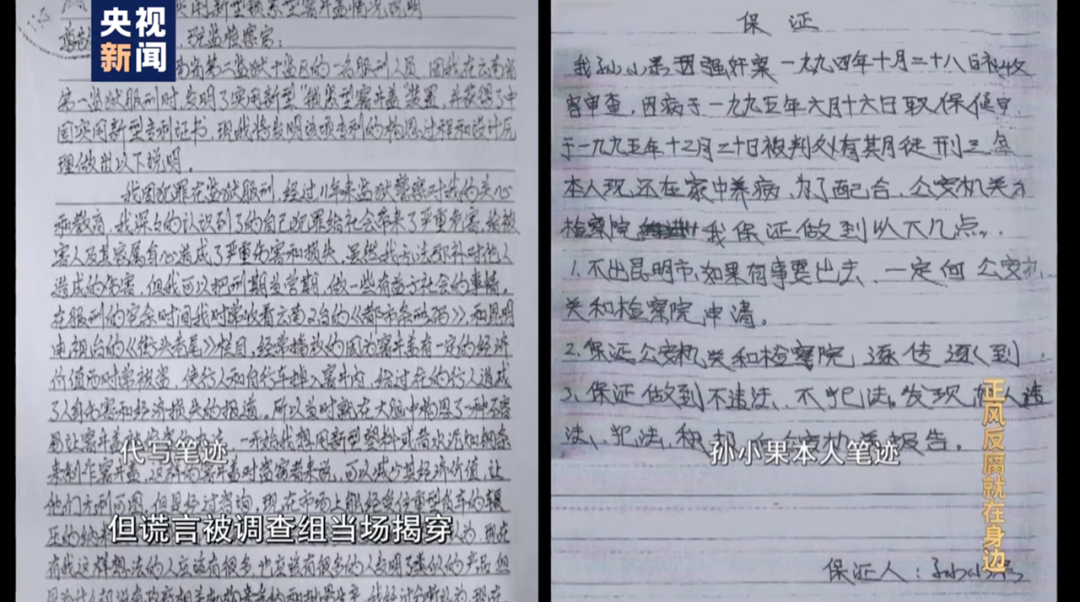 央视
新闻
实用新型锁紧型窨井盖情况说明
院监检察官：
南省第二监狱十监区的一名服刑人员，因我在云南省
第一监狱服刑时，发明了实用新型"锁紧型窨井盖"装置，并获得了中
国实用新型专利证书，现我将发明该项专利的构思过程和设计原
理做出以下说明。
我因犯罪在监狱服刑，经过11年来监狱警察对我的关心
和教育，我深刻的认识到了的自己犯罪给社会带来了严重危害，给被
害人及其家属身心造成了严重伤害和损失，虽然我无法弥补对他人
造成的伤害，但我可以把刑期当学期，做一些有益于社会的事情。
在服刑的空余时间我时常收看云南2台的《都市条形码》，和昆明
电视台的《街头巷尾》栏目，经常播放的因为窨井盖有一定的经济
价值而时常被盗，使行人和自行车掉入窨井内，给过往的行人造成
了人身伤害和经济损失的报道。所以当时就在大脑中构思了一种不容
易让窨井盖 一开始我想用新型塑料或者水泥加钢条
来制作窨井盖，这样的窨井盖对盗窃者来说，可以减少其经济价值，让
他们无利可图，但是经过咨询，现在市场上能经受住重型货车的辗
压的 现在
有我这样想法的人应该有很多，也应该有很多的人发明了类似的产品，但
代写笔迹
但谎言被调查组当场揭穿
保证
我孙小果因强奸案一九九四年十月二十八日被收
容审查，因病于一九九五年六月十六日取保候审
于一九九五年十二月二十日被判处有其月徒刑三年
本人现还在家中养病，为了配合，公安机关和
检察院 我保证做到以下几点。
1.不出昆明市，如果有事要出去，一定向公安机
关和检察院申请。
2.保证公安机关和检察院，逐传逐到。
3.保证做到不违法、不犯法。发现 人违
法、犯法、积 报告。
孙小果本人笔迹
保证人：孙小果
正风反腐就在身边